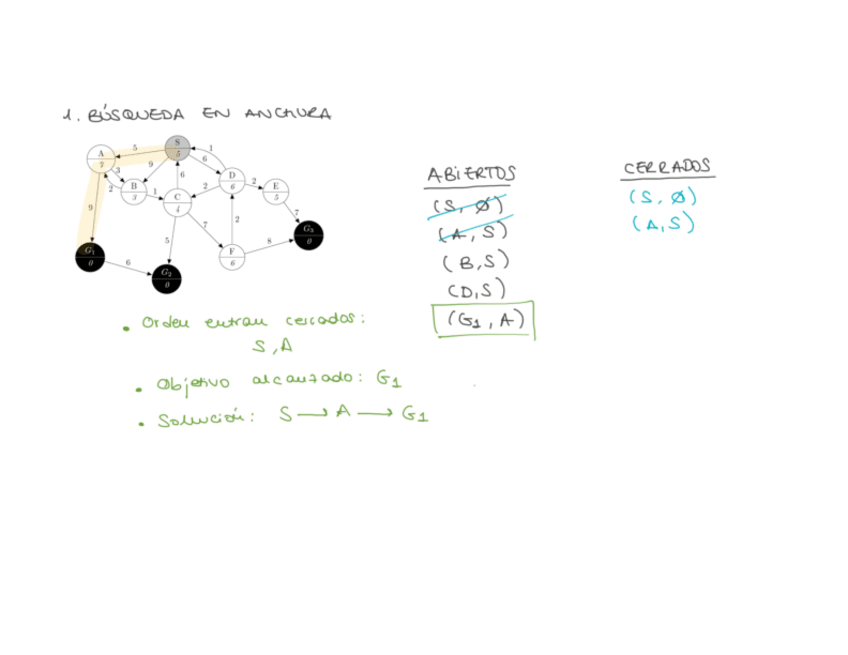 1. BÚSQUEDA EN ANCHURA
ABIERTOS
CERRADOS
(S, Ø)
(S, Ø)
(A, S)
(A, S)
(B, S)
(D, S)
(G1, A)
A
7
S
5
B
3
C
4
D
6
E
5
F
6
G1
0
G2
0
G3
0
5
9
6
1
3
2
1
6
2
2
7
9
5
7
2
8
6
• Orden entran cerrados:
S, A
• Objetivo alcanzado: G1
• Solución: S → A → G1